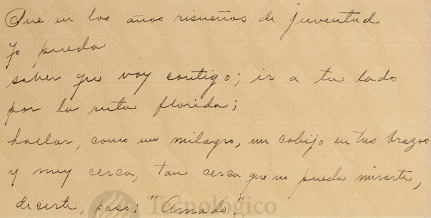 Que en los años risueños de juventud
yo pueda
saber que voy contigo; ir a tu lado
por la ruta florida;
hallar, como un milagro, un cobijo en tus brazos
y muy cerca, tan cerca que no pueda mirarte,
decirte, paso: "Amado".
Tecnológico